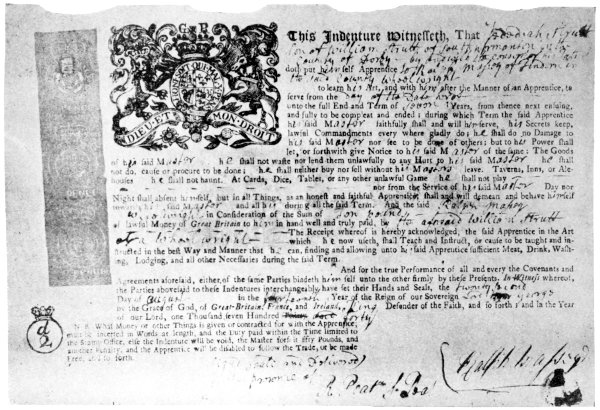 G R
HONI SOIT QUI MAL Y PENSE
DIEU ET MON DROIT
This Indenture Witnesseth, That Jedediah Strutt
Son of William Strutt, of South Normanton in the
County of Derby
doth put himself Apprentice to Ralph Massey of Findern in
the said County Wheelwright
to learn his Art, and with him after the Manner of an Apprentice, to
serve from the Day of the Date hereof
unto the full End and Term of Seven Years, from thence next ensuing,
and fully to be compleat and ended; during which Term the said Apprentice
his said Master faithfully shall and will serve, his Secrets keep,
lawful Commandments every where gladly do; he shall do no Damage to
his said Master nor see to be done of others; but to his Power shall
let, or forthwith give Notice to his said Master of the same: The Goods
of his said Master he shall not waste nor lend them unlawfully to any Hurt to his said Master he shall
not do, cause or procure to be done; he shall neither buy nor sell without his Masters leave. Taverns, Inns, or Ale-
houses he shall not haunt. At Cards, Dice, Tables, or any other unlawful Game he shall not play
nor from the Service of his said Master Day nor
Night shall absent himself, but in all Things, as an honest and faithful Apprentice, shall and will demean and behave himself
towards his said Master and all his during all the said Term. And the said Ralph Massey
Wheelwright in Consideration of the Sum of Ten Pounds
of lawful Money of Great Britain to him in hand well and truly paid, by the aforesaid William Strutt
The Receipt whereof is hereby acknowledged, the said Apprentice in the Art
of a Wheelwright which he now useth, shall Teach and Instruct, or cause to be taught and in-
structed in the best Way and Manner that he can, finding and allowing unto his said Apprentice sufficient Meat, Drink, Wash-
ing, Lodging, and all other Necessaries during the said Term.
And for the true Performance of all and every the Covenants and
Agreements aforesaid, either of the same Parties bindeth himself unto the other firmly by these Presents. In Witness whereof,
the Parties aforesaid to these Indentures interchangeably have set their Hands and Seals, the twenty
Day of August in the fourteenth Year of the Reign of our Sovereign Lord George
by the Grace of God, of Great-Britain, France, and Ireland, King Defender of the Faith, and so forth; and in the Year
of our Lord, One Thousand seven Hundred forty
N. B. What Money or other Things is given or contracted for with the Apprentice,
must be inserted in Words at length, and the Duty paid within the Time limited to
the Stamp-Office, else the Indenture will be void, the Master forfeit fifty Pounds, and
another Penalty, and the Apprentice will be disabled to follow the Trade, or be made
Free, and so forth.
Sealed and Delivered
presence of
Ralph Massey